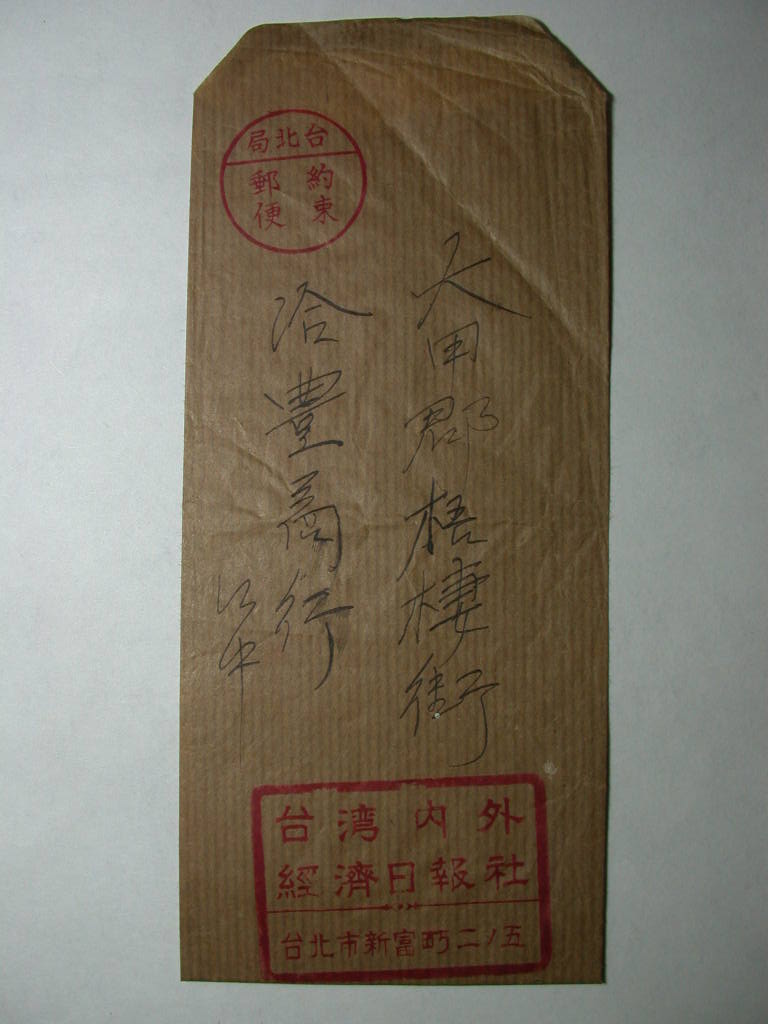 台北局
約束
郵便
大甲郡梧棲街
洽豊商行
御中
台湾内外
經濟日報社
台北市新富町二ノ五